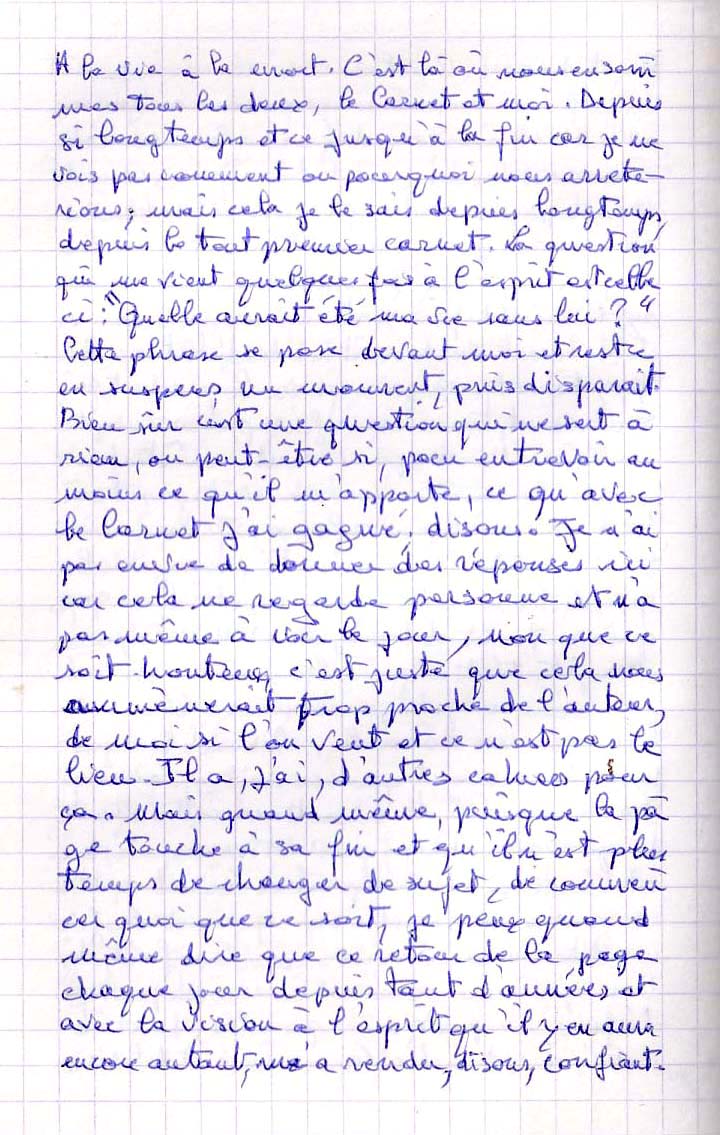 A la vie à la mort. C'est là où nous en som
mes tous les deux, le Carnet et moi. Depuis
si longtemps et ce jusqu'à la fin car je ne
vois pas comment ou pourquoi nous arrête-
rions; mais cela je le sais depuis longtemps,
depuis le tout premier carnet. La question
qui me vient quelques fois à l'esprit est celle
ci: "Quelle aurait été ma vie sans lui ?"
Cette phrase se pose devant moi et reste
en suspens un moment, puis disparait.
Bien sûr c'est une question qui ne sert à
rien, ou peut-être si, pour entrevoir au
moins ce qu'il m'apporte, ce qu'avec
le Carnet j'ai gagné, disons. Je n'ai
pas envie de donner des réponses ici
car cela ne regarde personne et n'a
pas même à voir le jour, non que ce
soit honteux, c'est juste que cela nous
amènerait trop proche de l'auteur,
de moi si l'on veut et ce n'est pas le
lieu. Il a, j'ai, d'autres cahiers pour
ça. Mais quand même, puisque la pa
ge touche à sa fin et qu'il n'est plus
temps de changer de sujet, de commen
cer quoi que ce soit, je peux quand
même dire que ce retour de la page
chaque jour depuis tant d'années et
avec la vision à l'esprit qu'il y en aura
encore autant, m'a rendu, disons, confiant.